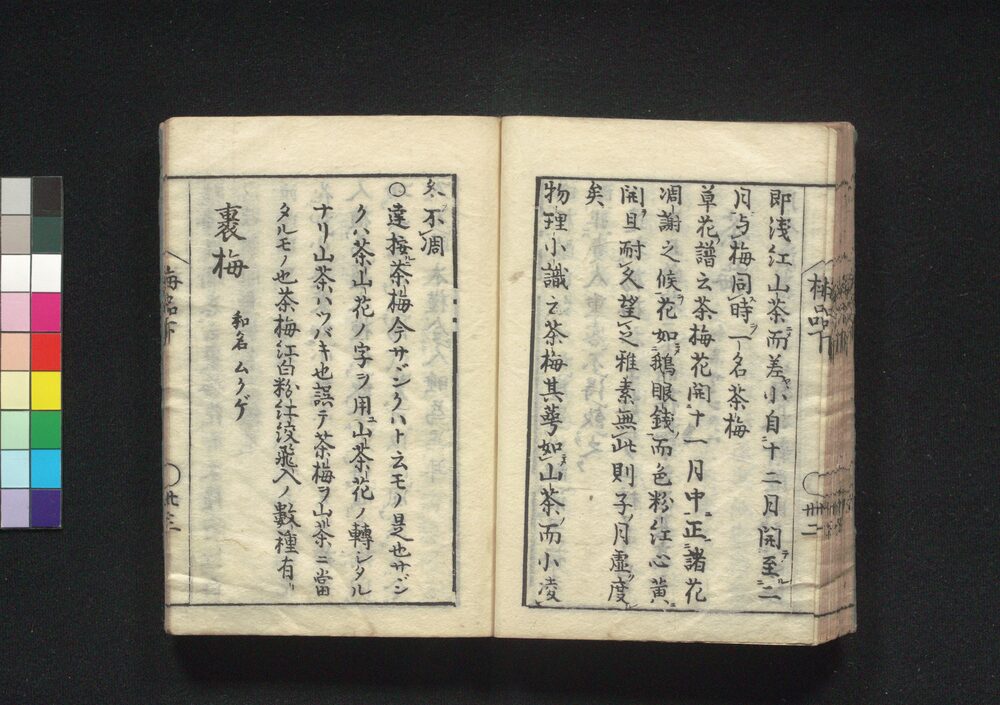 即浅红山茶而差小自十二月開至二
月与梅同時一名茶梅
草花譜云茶梅花開十一月中正諸花
凋謝之候花如鵝眼錢而色粉红心黄
開且耐久望之雅素無此則子月虚度
矣
物理小識云茶梅其萼如山茶而小凌
梅品下
卅二
冬不凋
〇達按茶梅今サヾンクハト云モノ是也サヾン
クハ茶山花ノ字ヲ用ユ山茶花ノ轉シタル
ナリ山茶ハツバキ也誤テ茶梅ヲ山茶ニ當
タルモノ也茶梅红白粉红絞飛入ノ數種有リ
裏梅
和名 ムクゲ
梅品下
卅三